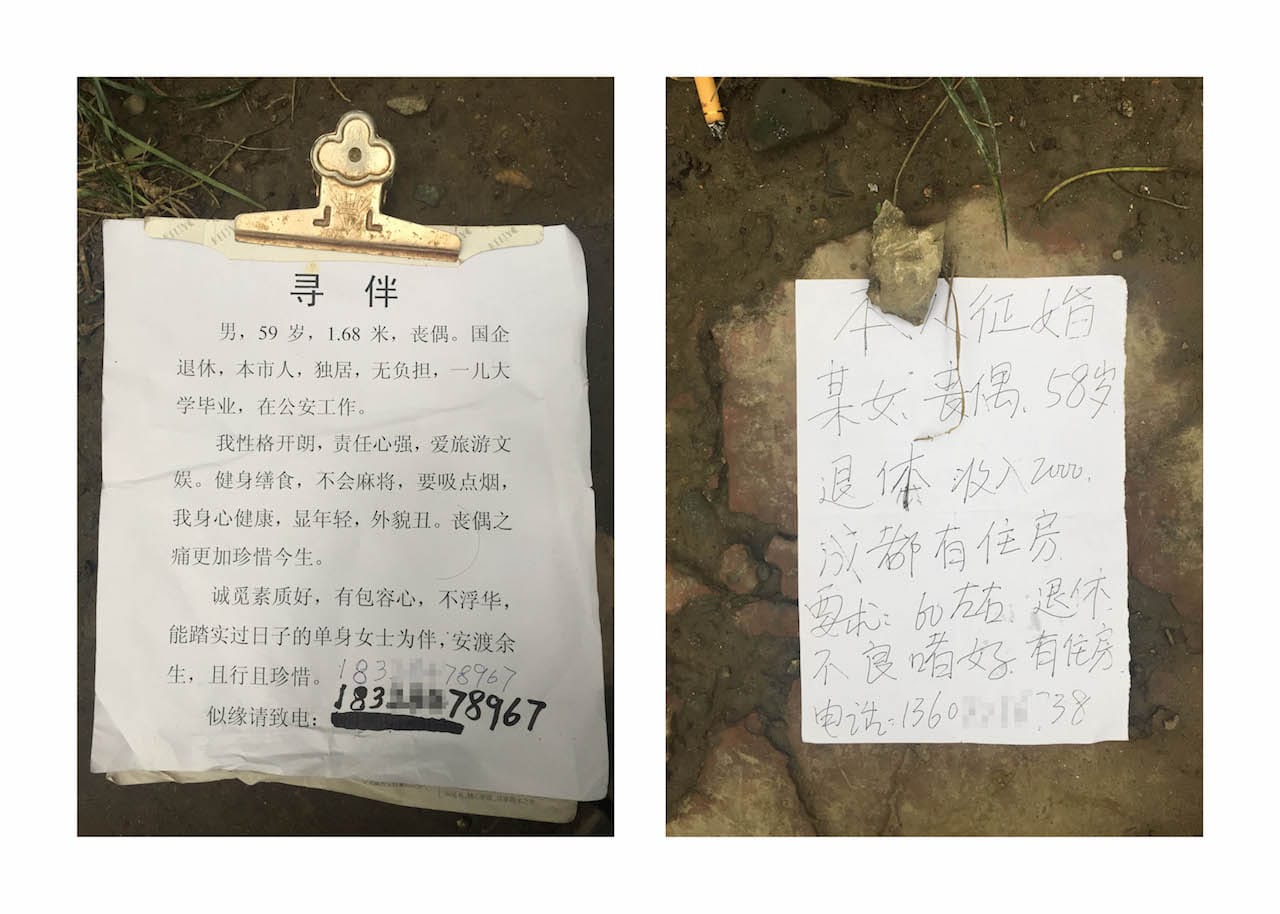 寻 伴
男，59 岁，1.68 米，丧偶。国企
退休，本市人，独居，无负担，一儿大
学毕业，在公安工作。
我性格开朗，责任心强，爱旅游文
娱。健身缮食，不会麻将，要吸点烟，
我身心健康，显年轻，外貌丑。丧偶之
痛更加珍惜今生。
诚觅素质好，有包容心，不浮华，
能踏实过日子的单身女士为伴，安渡余
生，且行且珍惜。 183 78967
似缘请致电： 183 78967
本人征婚
某女、丧偶、58岁
退休 收入2000.
成都有住房
要求：60左右 退休
不良啫好 有住房
电话：1360 738